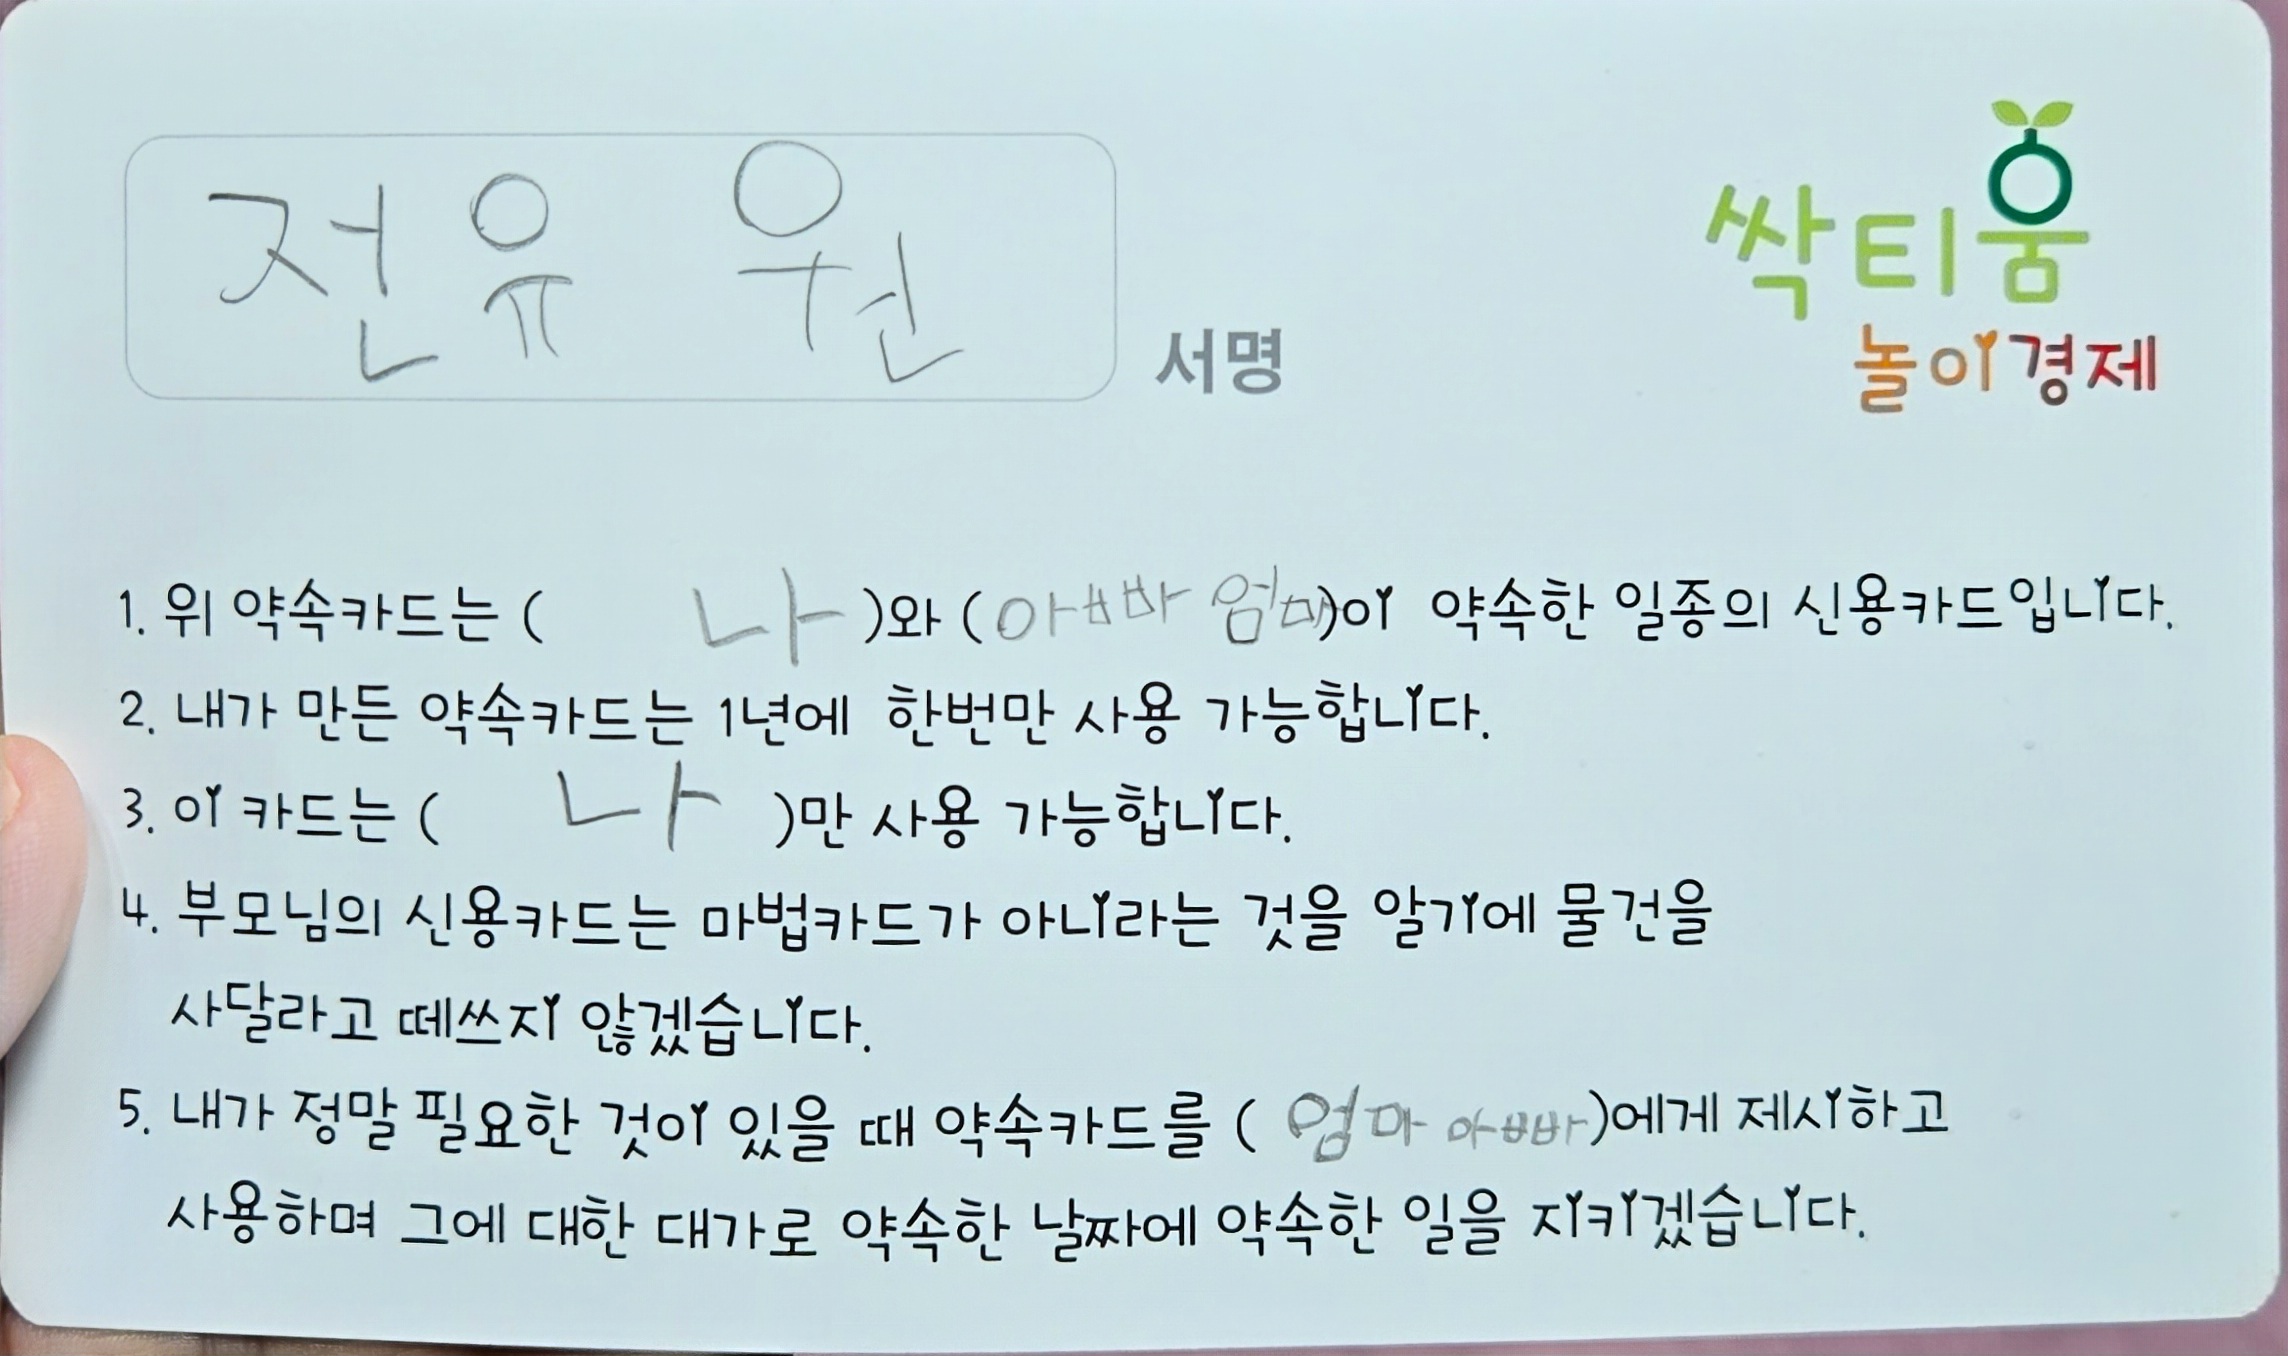 전유원 서명
싹티움
놀이경제
1. 위 약속카드는 ( 나 )와 (아빠 엄마)이 약속한 일종의 신용카드입니다.
2. 내가 만든 약속카드는 1년에 한번만 사용 가능합니다.
3. 이 카드는 ( 나 )만 사용 가능합니다.
4. 부모님의 신용카드는 마법카드가 아니라는 것을 알기에 물건을
사달라고 떼쓰지 않겠습니다.
5. 내가 정말 필요한 것이 있을 때 약속카드를 ( 엄마 아빠)에게 제시하고
사용하며 그에 대한 대가로 약속한 날짜에 약속한 일을 지키겠습니다.